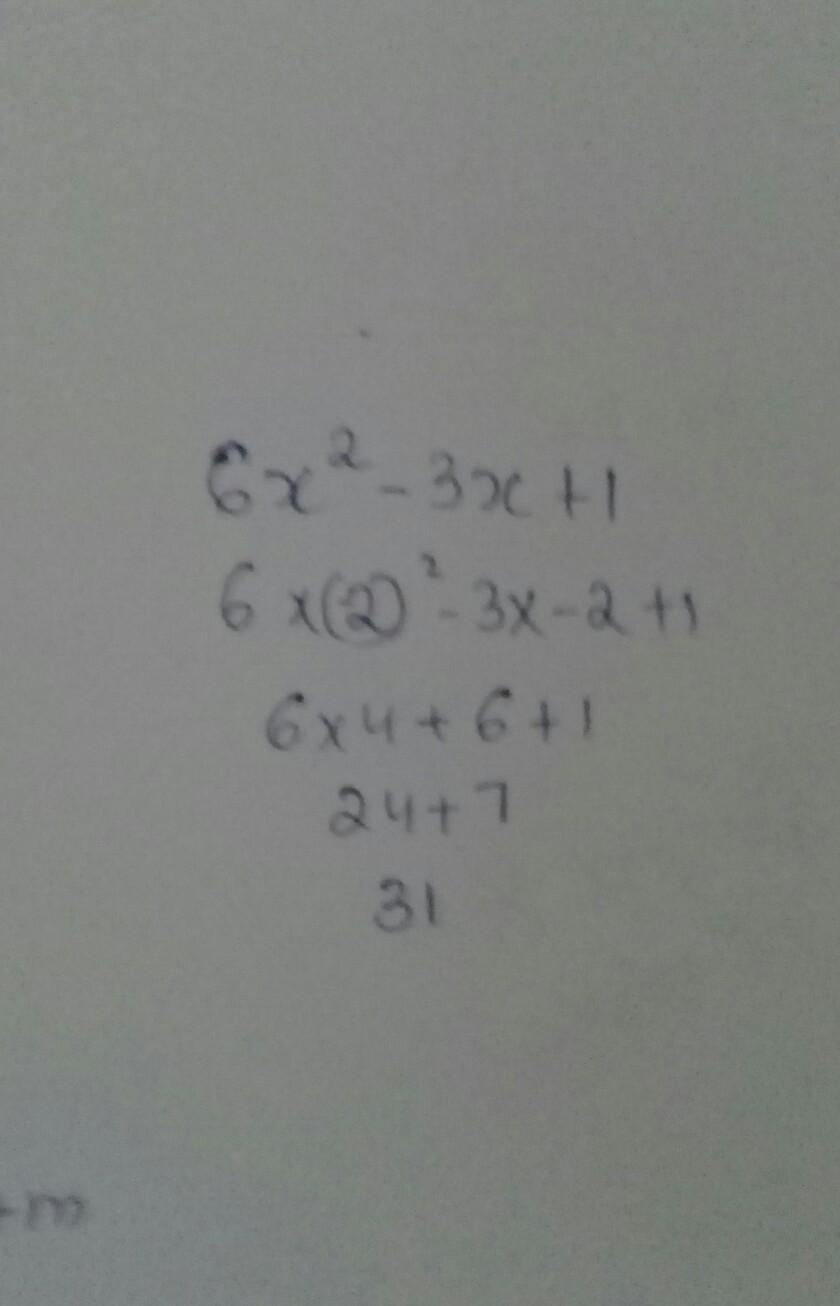 6x² - 3x + 1
6 x (2)² - 3x - 2 + 1
6 x 4 + 6 + 1
24 + 7
31
+m